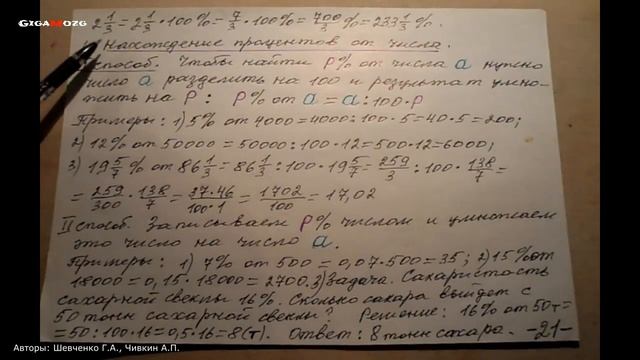 GIGAMOZG
2 1/3 = 2 1/3 · 100% = 7/3 · 100% = 700/3 % = 233 1/3 %.
Нахождение процентов от числа.
способ. Чтобы найти P% от числа a нужно
число a разделить на 100 и результат умно-
жить на P: P% от a = a : 100 · P
Примеры: 1) 5% от 4000 = 4000 : 100 · 5 = 40 · 5 = 200;
2) 12% от 50000 = 50000 : 100 · 12 = 500 · 12 = 6000;
3) 19 5/7 % от 86 1/3 = 86 1/3 : 100 · 19 5/7 = 259/3 : 100 · 138/7 =
= 259/300 · 138/7 = 37·46/100·1 = 1702/100 = 17,02
II способ. Записываем P% числом и умножаем
это число на число a.
Примеры: 1) 7% от 500 = 0,07 · 500 = 35; 2) 15% от
18000 = 0,15 · 18000 = 2700. 3) Задача. Сахаристость
сахарной свеклы 16%. Сколько сахара выйдет с
50 тонн сахарной свеклы? Решение: 16% от 50т =
= 50 : 100 · 16 = 0,5 · 16 = 8(т). Ответ: 8 тонн сахара. -21-
Авторы: Шевченко Г.А., Чивкин А.П.